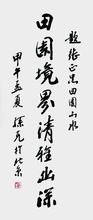 题张正忠田园山水
田园境界清雅幽深
甲午孟夏探元于北京